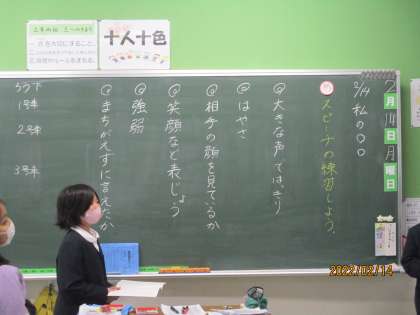 十人十色
2月14日月曜日
2/14 私の〇〇
スピーチの練習しよう。
◎大きな声ではっきり
◎はやさ
◎相手の顔を見ているか
◎笑顔など表じょう
◎強弱
◎まちがえずに言えたか
1号車
2号車
3号車
2022/02/14